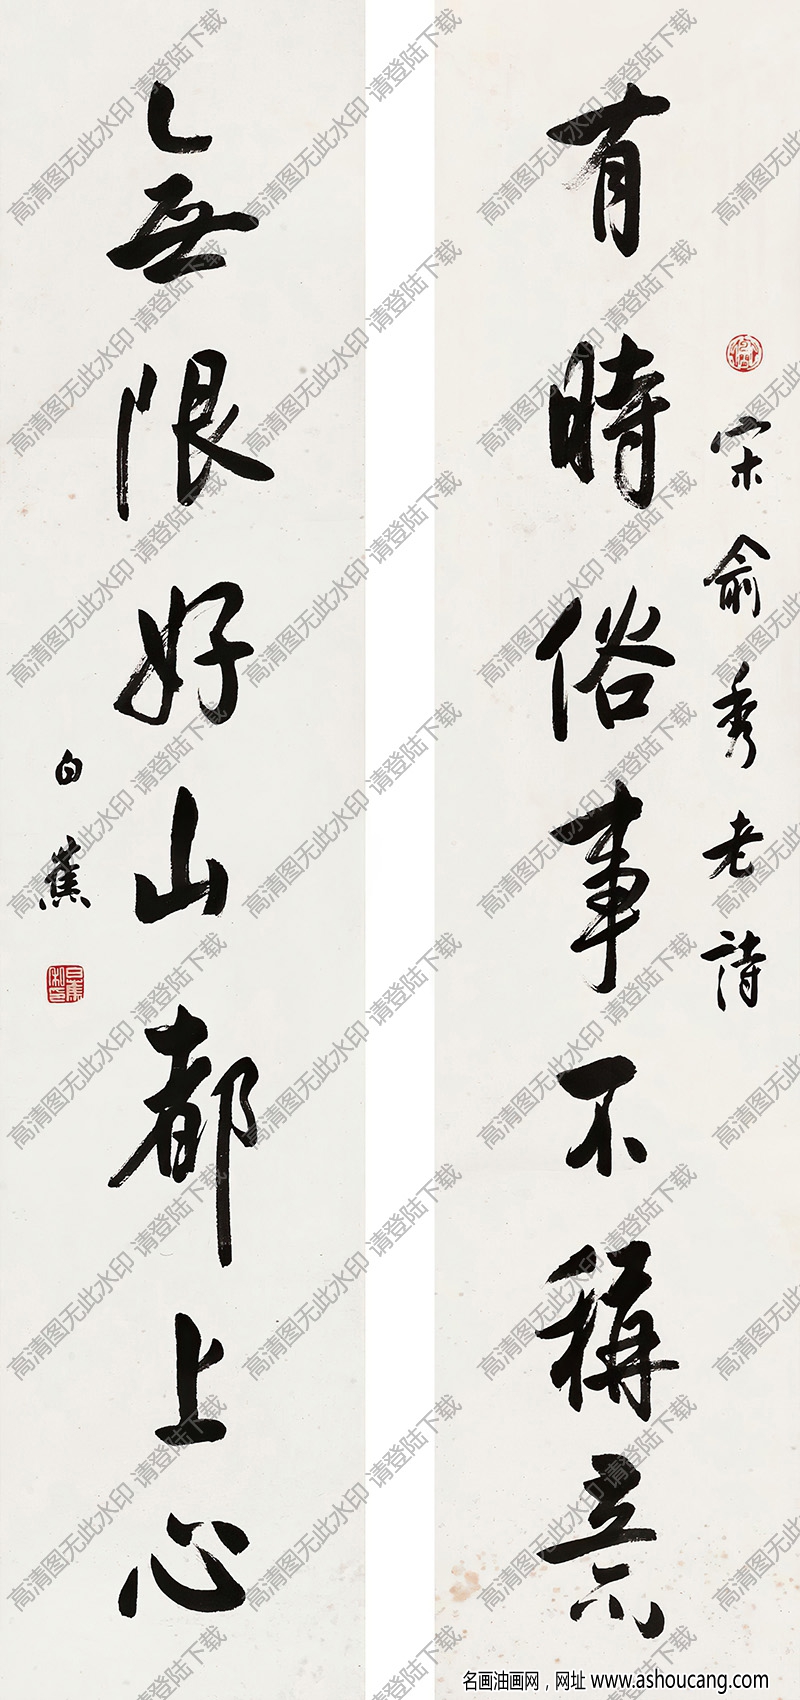 有時俗事不稱意
宋俞秀老詩
無限好山都上心
白蕉
高清图无此水印 请登陆下载
名画油画网，网址 www.ashoucang.com